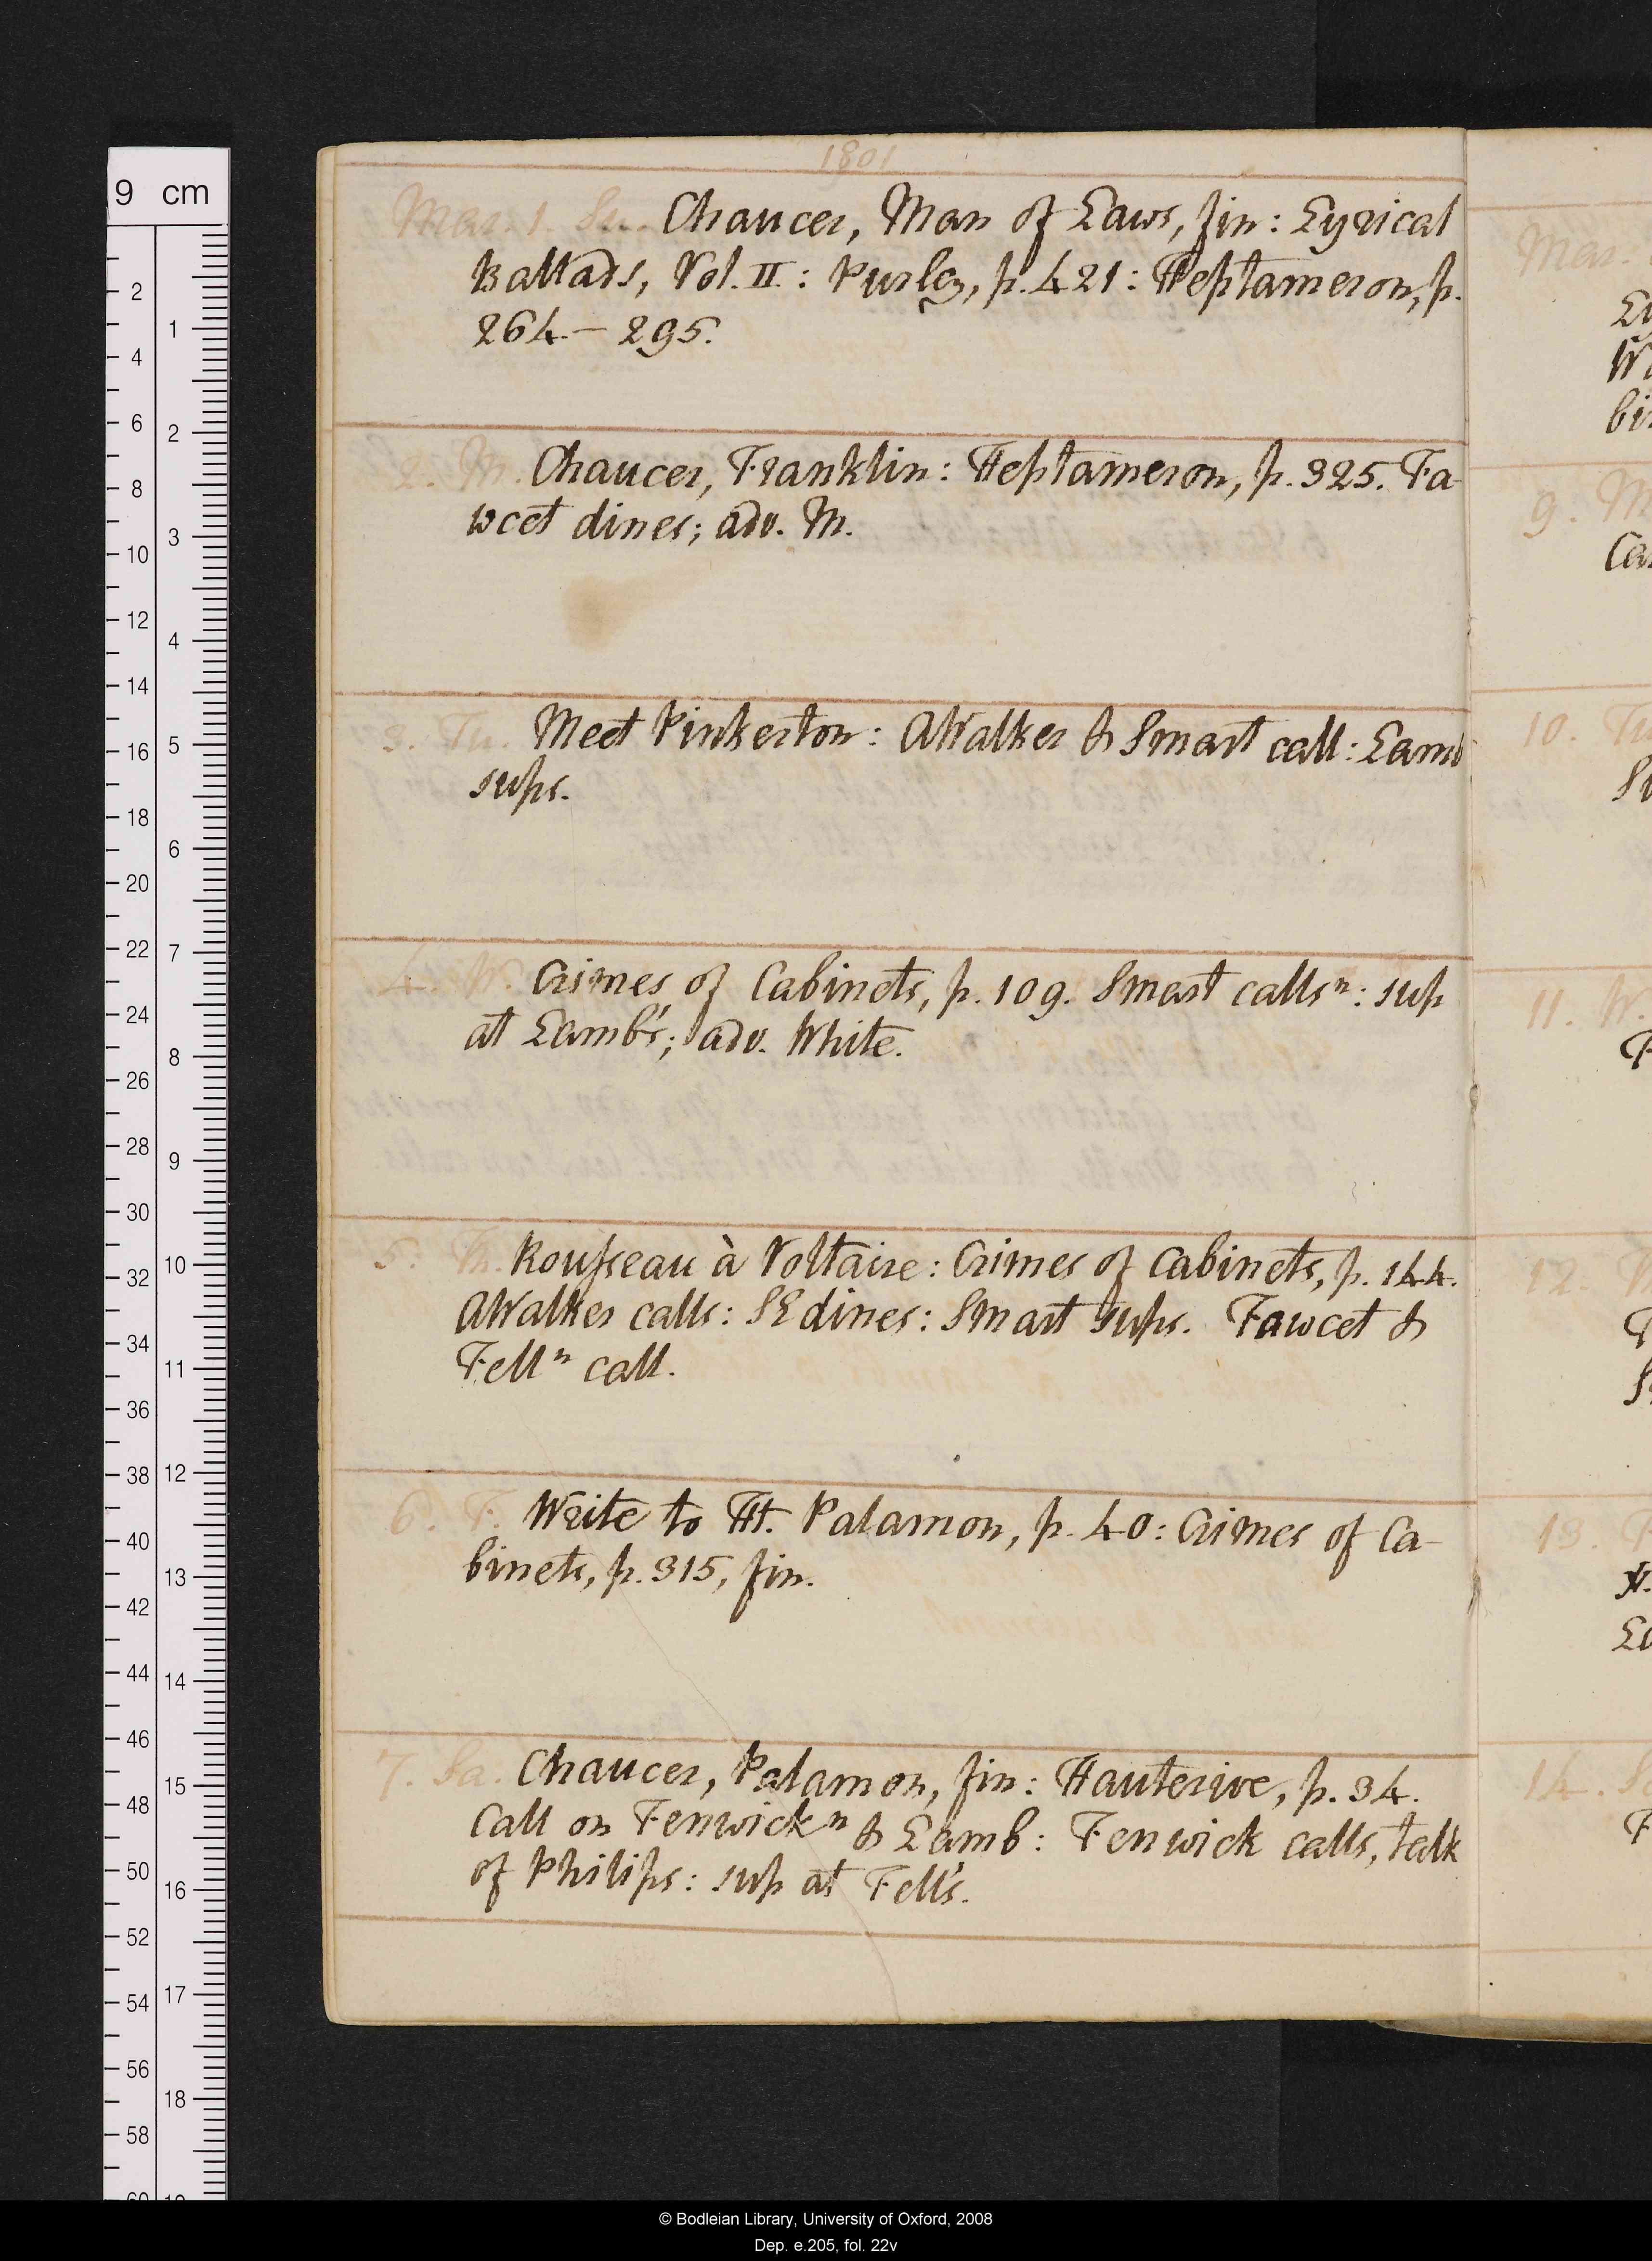 1801
Mar. 1. Su. Chaucer, Man of Laws, fin: Lyrical
Ballads, Vol. II: Purley, p. 421: Heptameron, p.
264 – 295.
2. M. Chaucer, Franklin: Heptameron, p. 325. Fa-
wcet dines; adv. M.
3. Tu. Meet Pinkerton: AWalker & Smart call: Lamb
sups.
4. W. Crimes of Cabinets, p. 109. Smart callsⁿ: sup
at Lamb's; adv. White.
5. Th. Rousseau à Voltaire: Crimes of Cabinets, p. 144.
AWalker calls: SE dines: Smart sups. Fawcet &
Fellⁿ call.
6. F. Write to Ht. Palamon, p. 40: Crimes of Ca-
binets, p. 315, fin.
7. Sa. Chaucer, Palamon, fin: Hauterive, p. 34.
Call on Fenwickⁿ & Lamb: Fenwick calls, talk
of Philips: sup at Fell's.
Mar.
9. M
10. Tu
11. W.
12.
13.
14. S
9 cm
2
4
6
8
10
12
14
16
18
20
22
24
26
28
30
32
34
36
38
40
42
44
46
48
50
52
54
56
58
60
1
2
3
4
5
6
7
8
9
10
11
12
13
14
15
16
17
18
19
© Bodleian Library, University of Oxford, 2008
Dep. e.205, fol. 22v